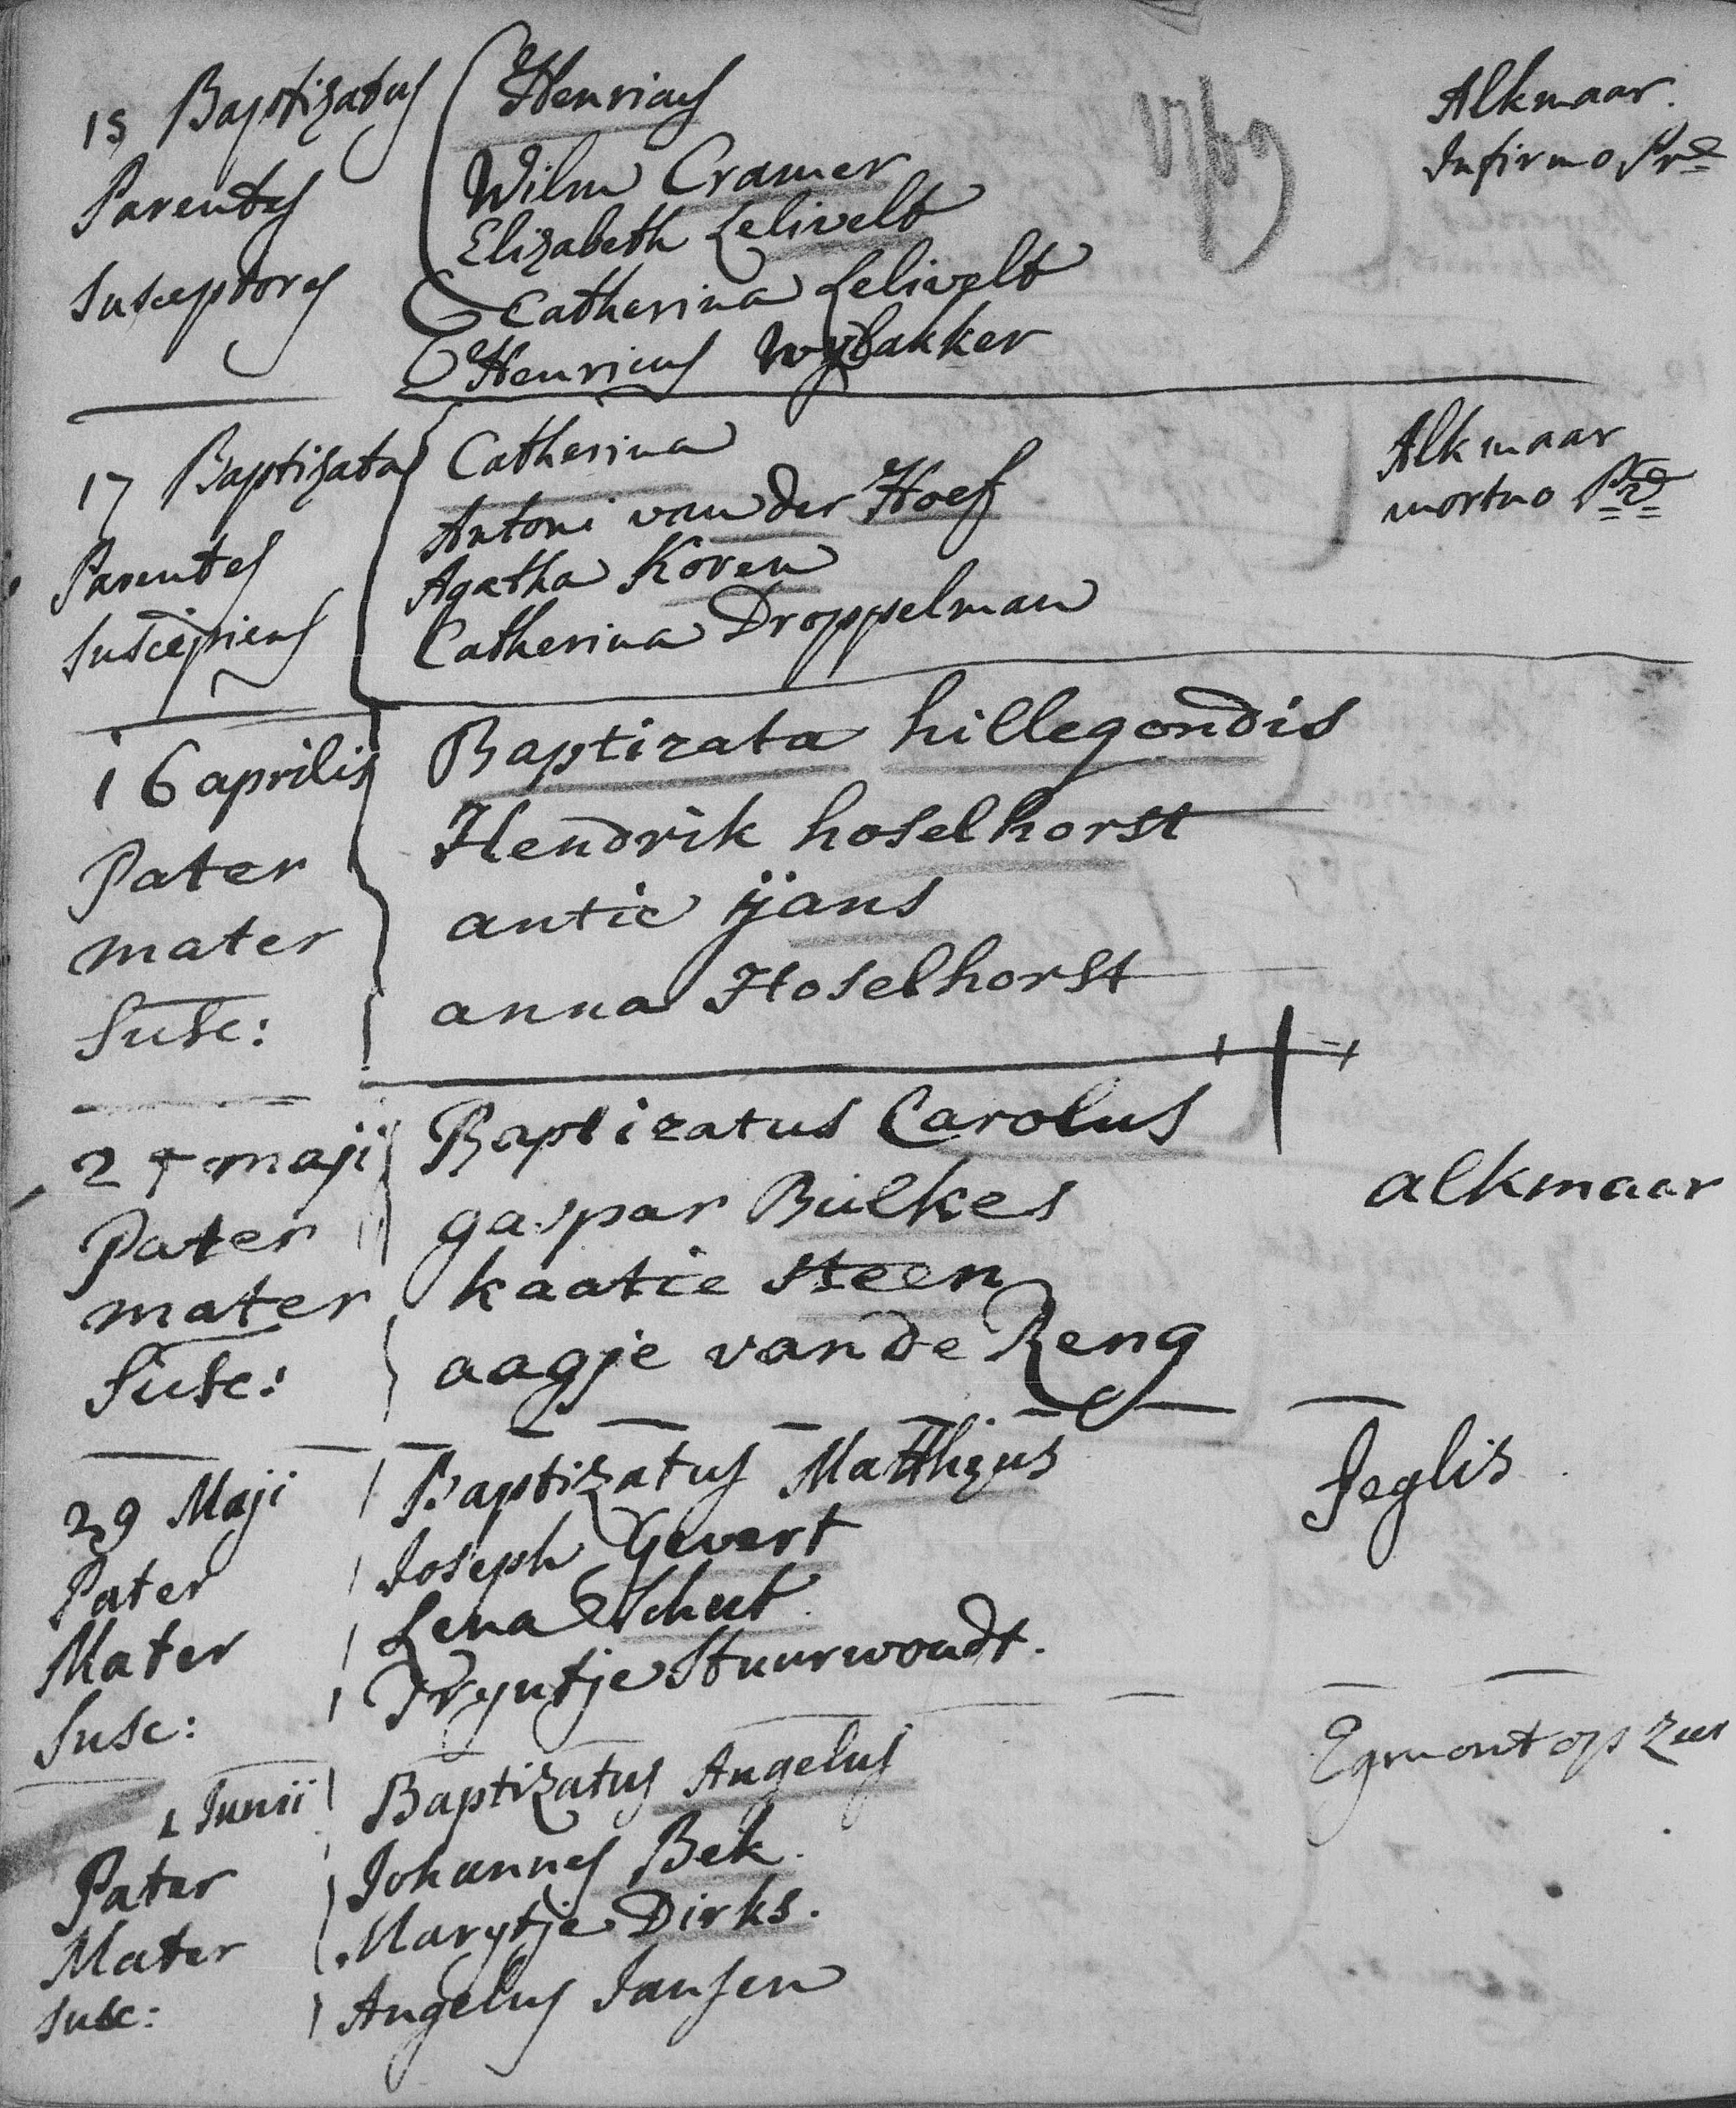 15 Baptizatus Henricus Alkmaar.
Parentes Wilm Cramer Infirmo Prd
Elizabeth Lelivelt
Susceptores Catherina Lelivelt
Henricus Wybakker
17 Baptizata Catherina Alkmaar
Antoni van der Hoef mortuo Prd
Parentes Agatha Koren
Suscipiens Catherina Droppelman
16 aprilis Baptizata hillegondis
Pater Hendrik hoselhorst
mater antie ijans
Susc: anna Hoselhorst
27 maji Baptizatus Carolus
Pater gaspar Bulkes alkmaar
mater kaatie steen
Susc: aagje van de Reng
29 Maji Baptizatus Matthęus Jeglis
Pater Joseph Gevert
Mater Lena Schut.
Susc: Tryntje Stuurwoudt.
1 Junii Baptizatus Angelus Egmont op Zee
Pater Johannes Bek.
Mater Marytje Dirks.
Susc: Angelus Jansen